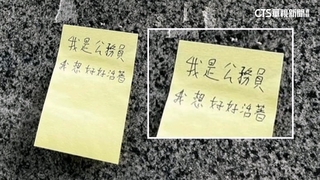 CTS華視新聞
我是公務員
我想好好活著
我是公務員
我想好好活著